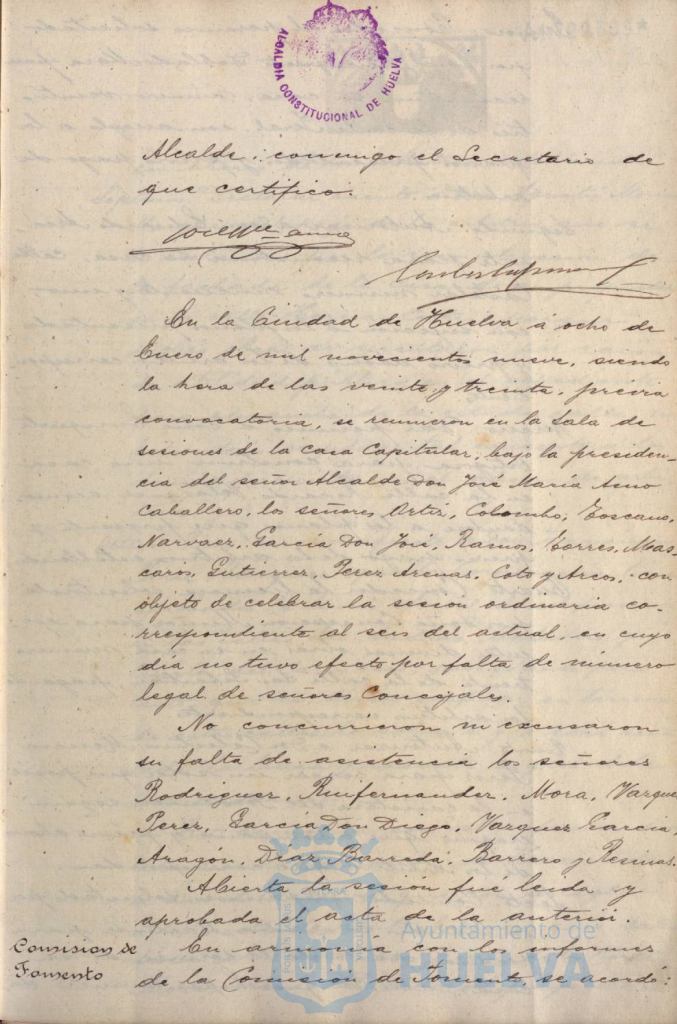 ALCALDIA CONSTITUCIONAL DE HUELVA
Alcalde; conmigo el Secretario de
que certifico.
En la Ciudad de Huelva á ocho de
Enero de mil novecientos nueve, siendo
la hora de las veinte y treinta, prévia
convocatoria, se reunieron en la Sala de
sesiones de la casa Capitular, bajo la presiden-
cia del señor Alcalde Don José María Amo
Caballero, los señores Ortiz, Colombo, Toscano,
Narvaez, García Don José, Ramos, Torres, Mas-
carós, Gutierrez, Perez, Arenas, Coto y Arcos, con
objeto de celebrar la sesión ordinaria co-
rrespondiente al seis del actual, en cuyo
día no tuvo efecto por falta de número
legal de señores Concejales.
No concurrieron ni excusaron
su falta de asistencia los señores
Rodriguez, Ruifernandez, Mora, Vazquez
Perez, García Don Diego, Vazquez García,
Aragón, Díaz Barreda, Barrero y Resinas.
Abierta la sesión fué leida y
aprobada el acta de la anterior.
Comision de
Fomento
En armonía con los informes
de la Comisión de Fomento, se acordó:
Ayuntamiento de
HUELVA